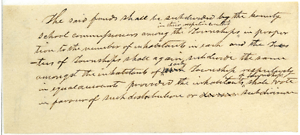 The said funds shall be subdivided by the County
in their respective counties
school commissioners among the Townships in propor
tion to the number of inhabitants in each and the
ters of Townships shall again subdivide the same
amongst the inhabitants of said Township respectively
in equal amount provided the inhabitants shall vote
in favour of such distribution or subdivision